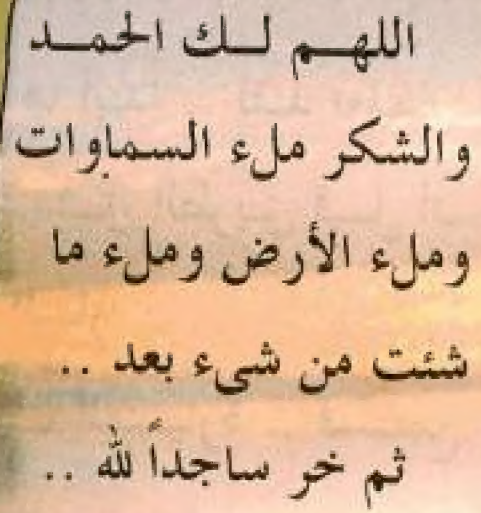 اللهم لك الحمد
والشكر ملء السماوات
وملء الأرض وملء ما
شئت من شىء بعد ..
ثم خر ساجداً لله ..